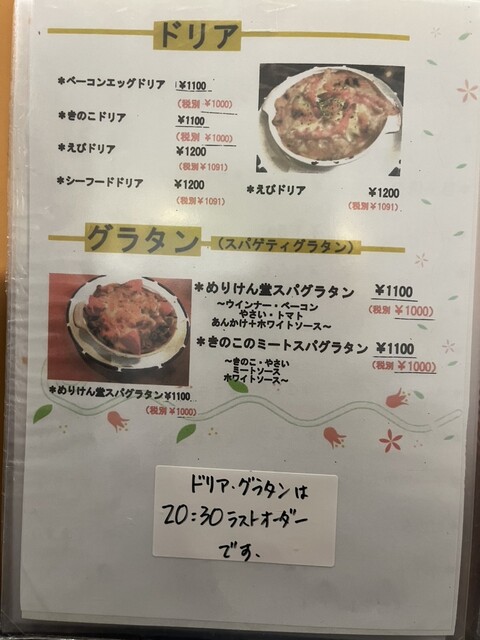 ドリア
*ベーコンエッグドリア ¥1100
(税別 ¥1000)
*きのこドリア ¥1100
(税別 ¥1000)
*えびドリア ¥1200
(税別 ¥1091)
*シーフードドリア ¥1200
(税別 ¥1091)
*えびドリア ¥1200
(税別 ¥1091)
グラタン (スパゲティグラタン)
*めりけん堂スパグラタン ¥1100
(税別 ¥1000)
~ウインナー・ベーコン
やさい・トマト
あんかけ+ホワイトソース~
*きのこのミートスパグラタン ¥1100
(税別 ¥1000)
~きのこ・やさい
ミートソース
ホワイトソース~
*めりけん堂スパグラタン ¥1100
(税別 ¥1000)
ドリア・グラタンは
20:30 ラストオーダー
です.